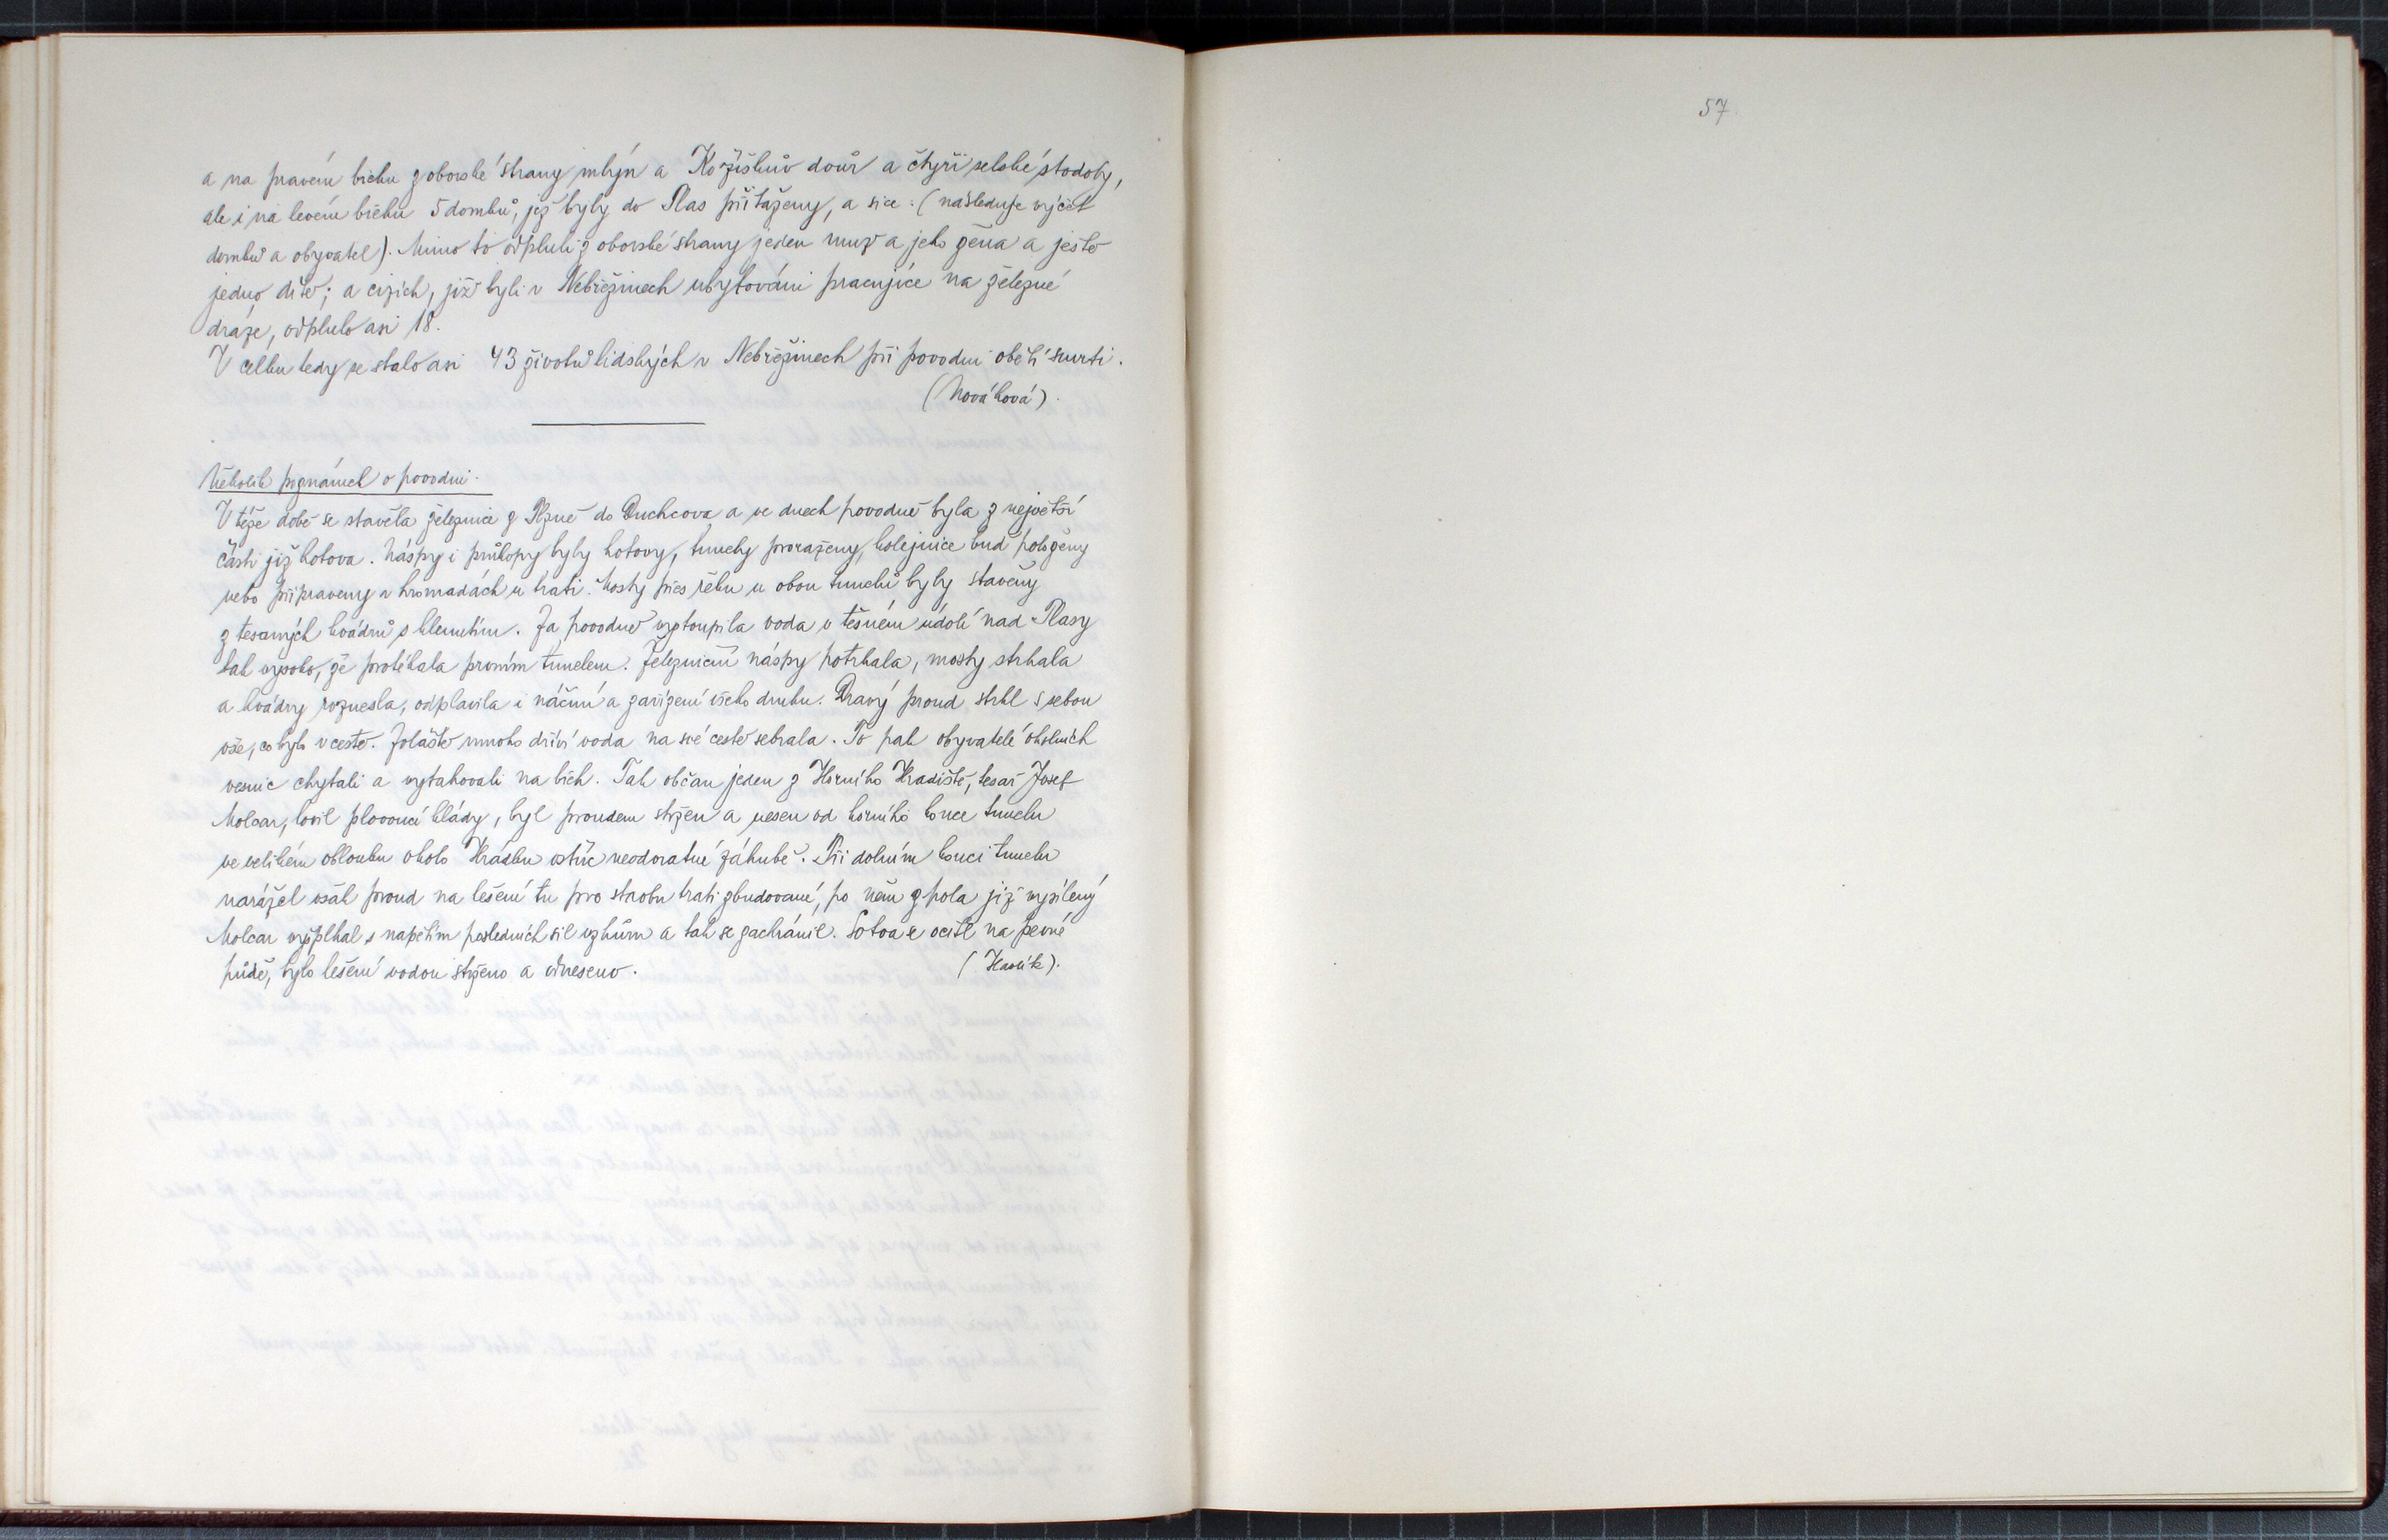 a na pravém břehu z oborské strany mlýn a Kožíškův dvůr a čtyři selské stodoly,
ale i na levém břehu 5 domků, jež byly do Plas přitaženy, a sice: (následuje výčet
domků a obyvatel). Mimo to odpluli z oborské strany jeden muž a jeho žena a ještě
jedno dítě; a cizích, již byli v Nebřezinech ubytováni pracujíce na železné
dráze, odplulo asi 18.
V celku tedy se stalo asi 43 životů lidských v Nebřezinech při povodni obětí smrti.
(Nováková).
Několik poznámek o povodni.
V téže době se stavěla železnice z Plzně do Duchcova a ve dnech povodně byla z největší
části již hotova. Náspy i průkopy byly hotovy, tunely proraženy, kolejnice buď položeny
nebo připraveny v hromadách u trati. Mosty přes řeku u obou tunelů byly stavěny
z tesaných kvádrů s klenutím. Za povodně vystoupila voda v těsném údolí nad Plasy
tak vysoko, že protékala prvním tunelem. Železniční náspy potrhala, mosty strhala
a kvádry roznesla, odplavila i náčiní a zařízení všeho druhu. Dravý proud strhl s sebou
vše, co bylo v cestě. Zvláště mnoho dříví voda na své cestě sebrala. To pak obyvatelé okolních
vesnic chytali a vytahovali na břeh. Tak občan jeden z Horního Hradiště, tesař Josef
Molcar, lovil plovoucí klády, byl proudem stržen a nesen od horního konce tunelu
ve velikém oblouku okolo Hrádku vstříc neodvratné záhubě. Při dolním konci tunelu
narážel však proud na lešení tu pro stavbu trati zbudované, po něm zpola již vysílený
Molcar vyšplhal s napětím posledních sil vzhůru a tak se zachránil. Sotva se ocitl na pevné
půdě, bylo lešení vodou strženo a odneseno.
(Havlík).
57